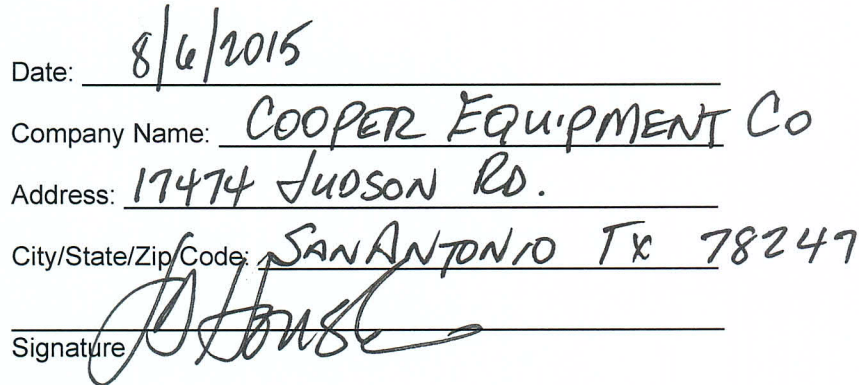 Date: 8/6/2015
Company Name: COOPER EQUIPMENT Co
Address: 17474 JUDSON RD.
City/State/Zip Code: SAN ANTONIO TX 78247
Signature